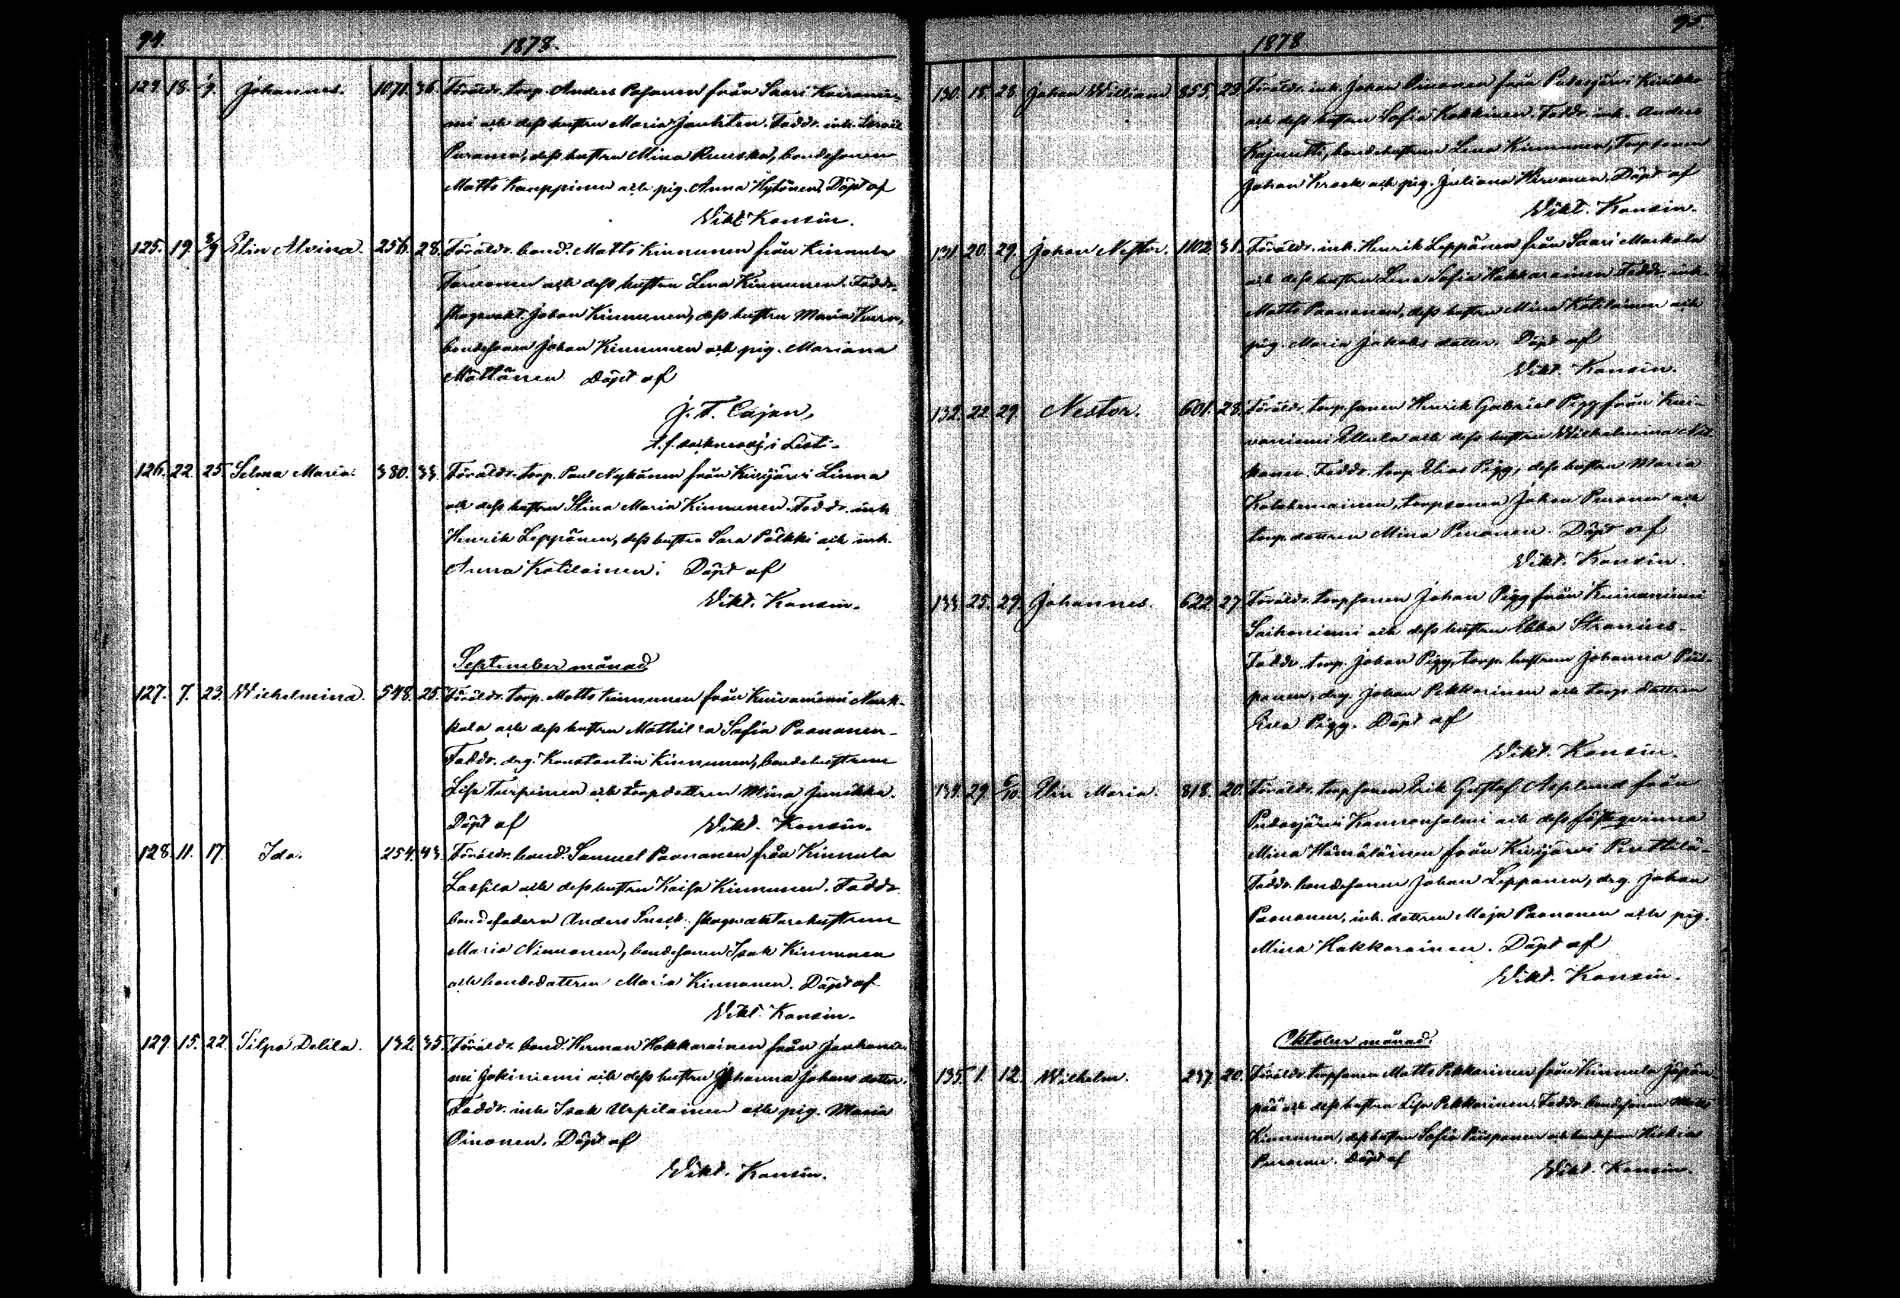 94.
1878.
124. 18. 1/9. Johannes. 1071. 36. Föräldr. torp. Anders Pasanen från Saari Koirani-
mi och dess hustru Maria Jauhiten. Faddr. inh.
Puranen, dess hustru Mina Ruuska, bondesonen
Matts Kauppinen och pig. Anna Hytönen. Döpt af
Vikt. Konsin.
125. 19. 3/9 Elin Alvina. 256. 28. Föräldr. bond. Matts Kinnunen från Kinnula
och dess hustru Lena Kinnunen. Faddr.
skogsvakt. Johan Kinnunen, dess hustru Maria
bondesonen Johan Kinnunen och pig. Mariana
Möttönen Döpt af
J. T. Cajan,
126. 22. 25. Selma Maria. 380. 33. Föräldr. torp. Paul Nykänen från Kivijärvi Linna
och dess hustru Stina Maria Kinnunen. Faddr. inh.
Henrik Leppänen, dess hustru Sara Pölkki och inh.
Anna Kotilainen. Döpt af
Vikt. Konsin.
September månad
127. 7. 23. Wilhelmina. 548. 25. Föräldr. torp. Matts Kinnunen från Kuivaniemi Mark-
kala och dess hustru Mathilda Sofia Paananen.
Faddr. drg. Konstantin Kinnunen, bondehustrun
Lisa Turpeinen och torpdottren Mina Junikka.
Döpt af Vikt. Konsin.
128. 11. 17. Ida. 254. 43. Föräldr. bond. Samuel Paananen från Kinnula
Lassila och dess hustru Kaisa Kinnunen. Faddr.
bondefadern Anders skogvaktarehustrun
Maria Niinonen, bondesonen Isak Kinnunen
och bondedottren Maria Kinnunen. Döpt af
Vikt. Konsin.
129. 15. 22. Silpa Delila. 132. 35. Föräldr. bond. Herman Hakkarainen från Jauhonie-
mi Jokiniemi och dess hustru Johanna Johans dotter.
Faddr. inh. Isak Urpilainen och pig. Maria
Oinonen. Döpt af
Vikt. Konsin.
95.
1878
130. 18. 28. Johan William 855. 29. Föräldr. inh. Johan Oinonen från Pudasjärvi
och dess hustru Sofia Kokkinen. Faddr. inh. Anders
bondehustrun Lena Kinnunen, torpsonen
Johan Krook och pig. Juliana Hirvonen. Döpt af
Vikt. Konsin.
131. 20. 29. Johan Nestor. 1102. 31. Föräldr. inh. Henrik Leppänen från Saari Markala
och dess hustru Lena Sofia Hakkarainen. Faddr. inh.
Matts Paananen, dess hustru Mina Kotilainen och
pig. Maria Jakobs dotter. Döpt af
Vikt. Konsin.
132. 22. 29. Nestor. 601. 28. Föräldr. torpsonen Henrik Gabriel Pigg från Kui-
vaniemi och dess hustru Wilhelmina
Faddr. torp. Elias Pigg, dess hustru Maria
Kolehmainen, torpsonen Johan Puranen och
torp.dottren Mina Puranen. Döpt af
Vikt. Konsin.
133. 25. 29. Johannes. 622. 27. Föräldr. torpsonen Johan Pigg från Kuivaniemi
Saihoniemi och dess hustru Ebba
Faddr. torp. Johan Pigg, torp. hustrun Johanna Piis-
panen, drg. Johan Pekkarinen och torp. dottren
Eva Pigg. Döpt af
Vikt. Konsin.
134. 29. 6/10. Elin Maria. 818. 20. Föräldr. torpsonen Erik Gustaf Asplund från
och dess fästeqvinna
Mina Hämäläinen från Kivijärvi Penttilä.
Faddr. bondesonen Johan Leppänen, drg. Johan
Paananen, inh. dottren Maja Paananen och pig.
Mina Hakkarainen. Döpt af
Vikt. Konsin.
Oktober månad.
135. 1. 12. Wilhelm. 237. 20. Föräldr. torpsonen Matts Pekkarinen från Kinnula Jäpän
pää och dess hustru Lisa Pekkarinen. Faddr. bondesonen Matts
Kinnunen, dess hustru Sofia Piispanen och bondesonen Hiskias
Puranen. Döpt af Vikt. Konsin.